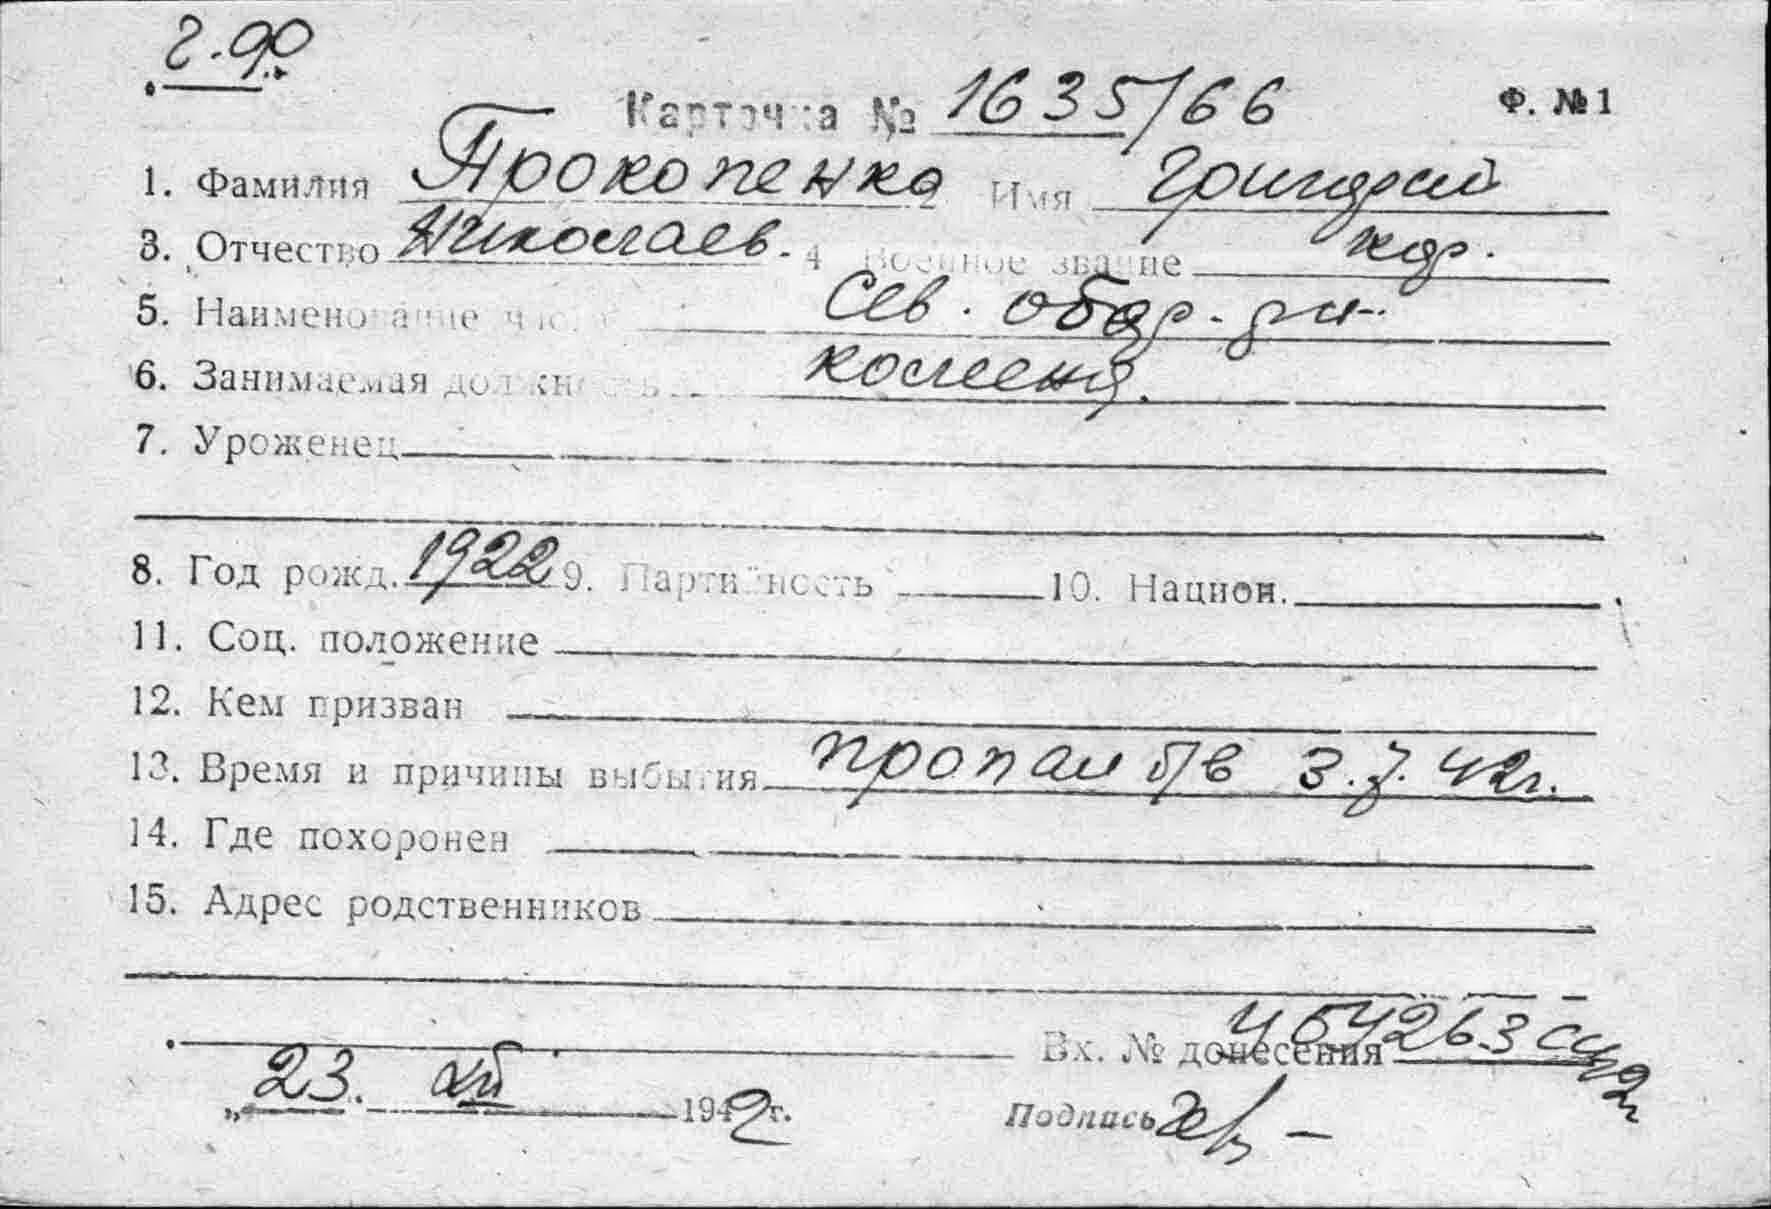 Карточка № 1635/66 Ф. №1
1. Фамилия Прокопенко Имя Григорий
3. Отчество Николаев. 4 Военное звание
5. Наименование части Сев. обор. р-н
6. Занимаемая должность коменд.
7. Уроженец
8. Год рожд. 1922 9. Партийность 10. Национ.
11. Соц. положение
12. Кем призван
13. Время и причины выбытия пропал б/в 3.7.42г.
14. Где похоронен
15. Адрес родственников
Вх. № донесения
„23. XII 1942 г. Подпись